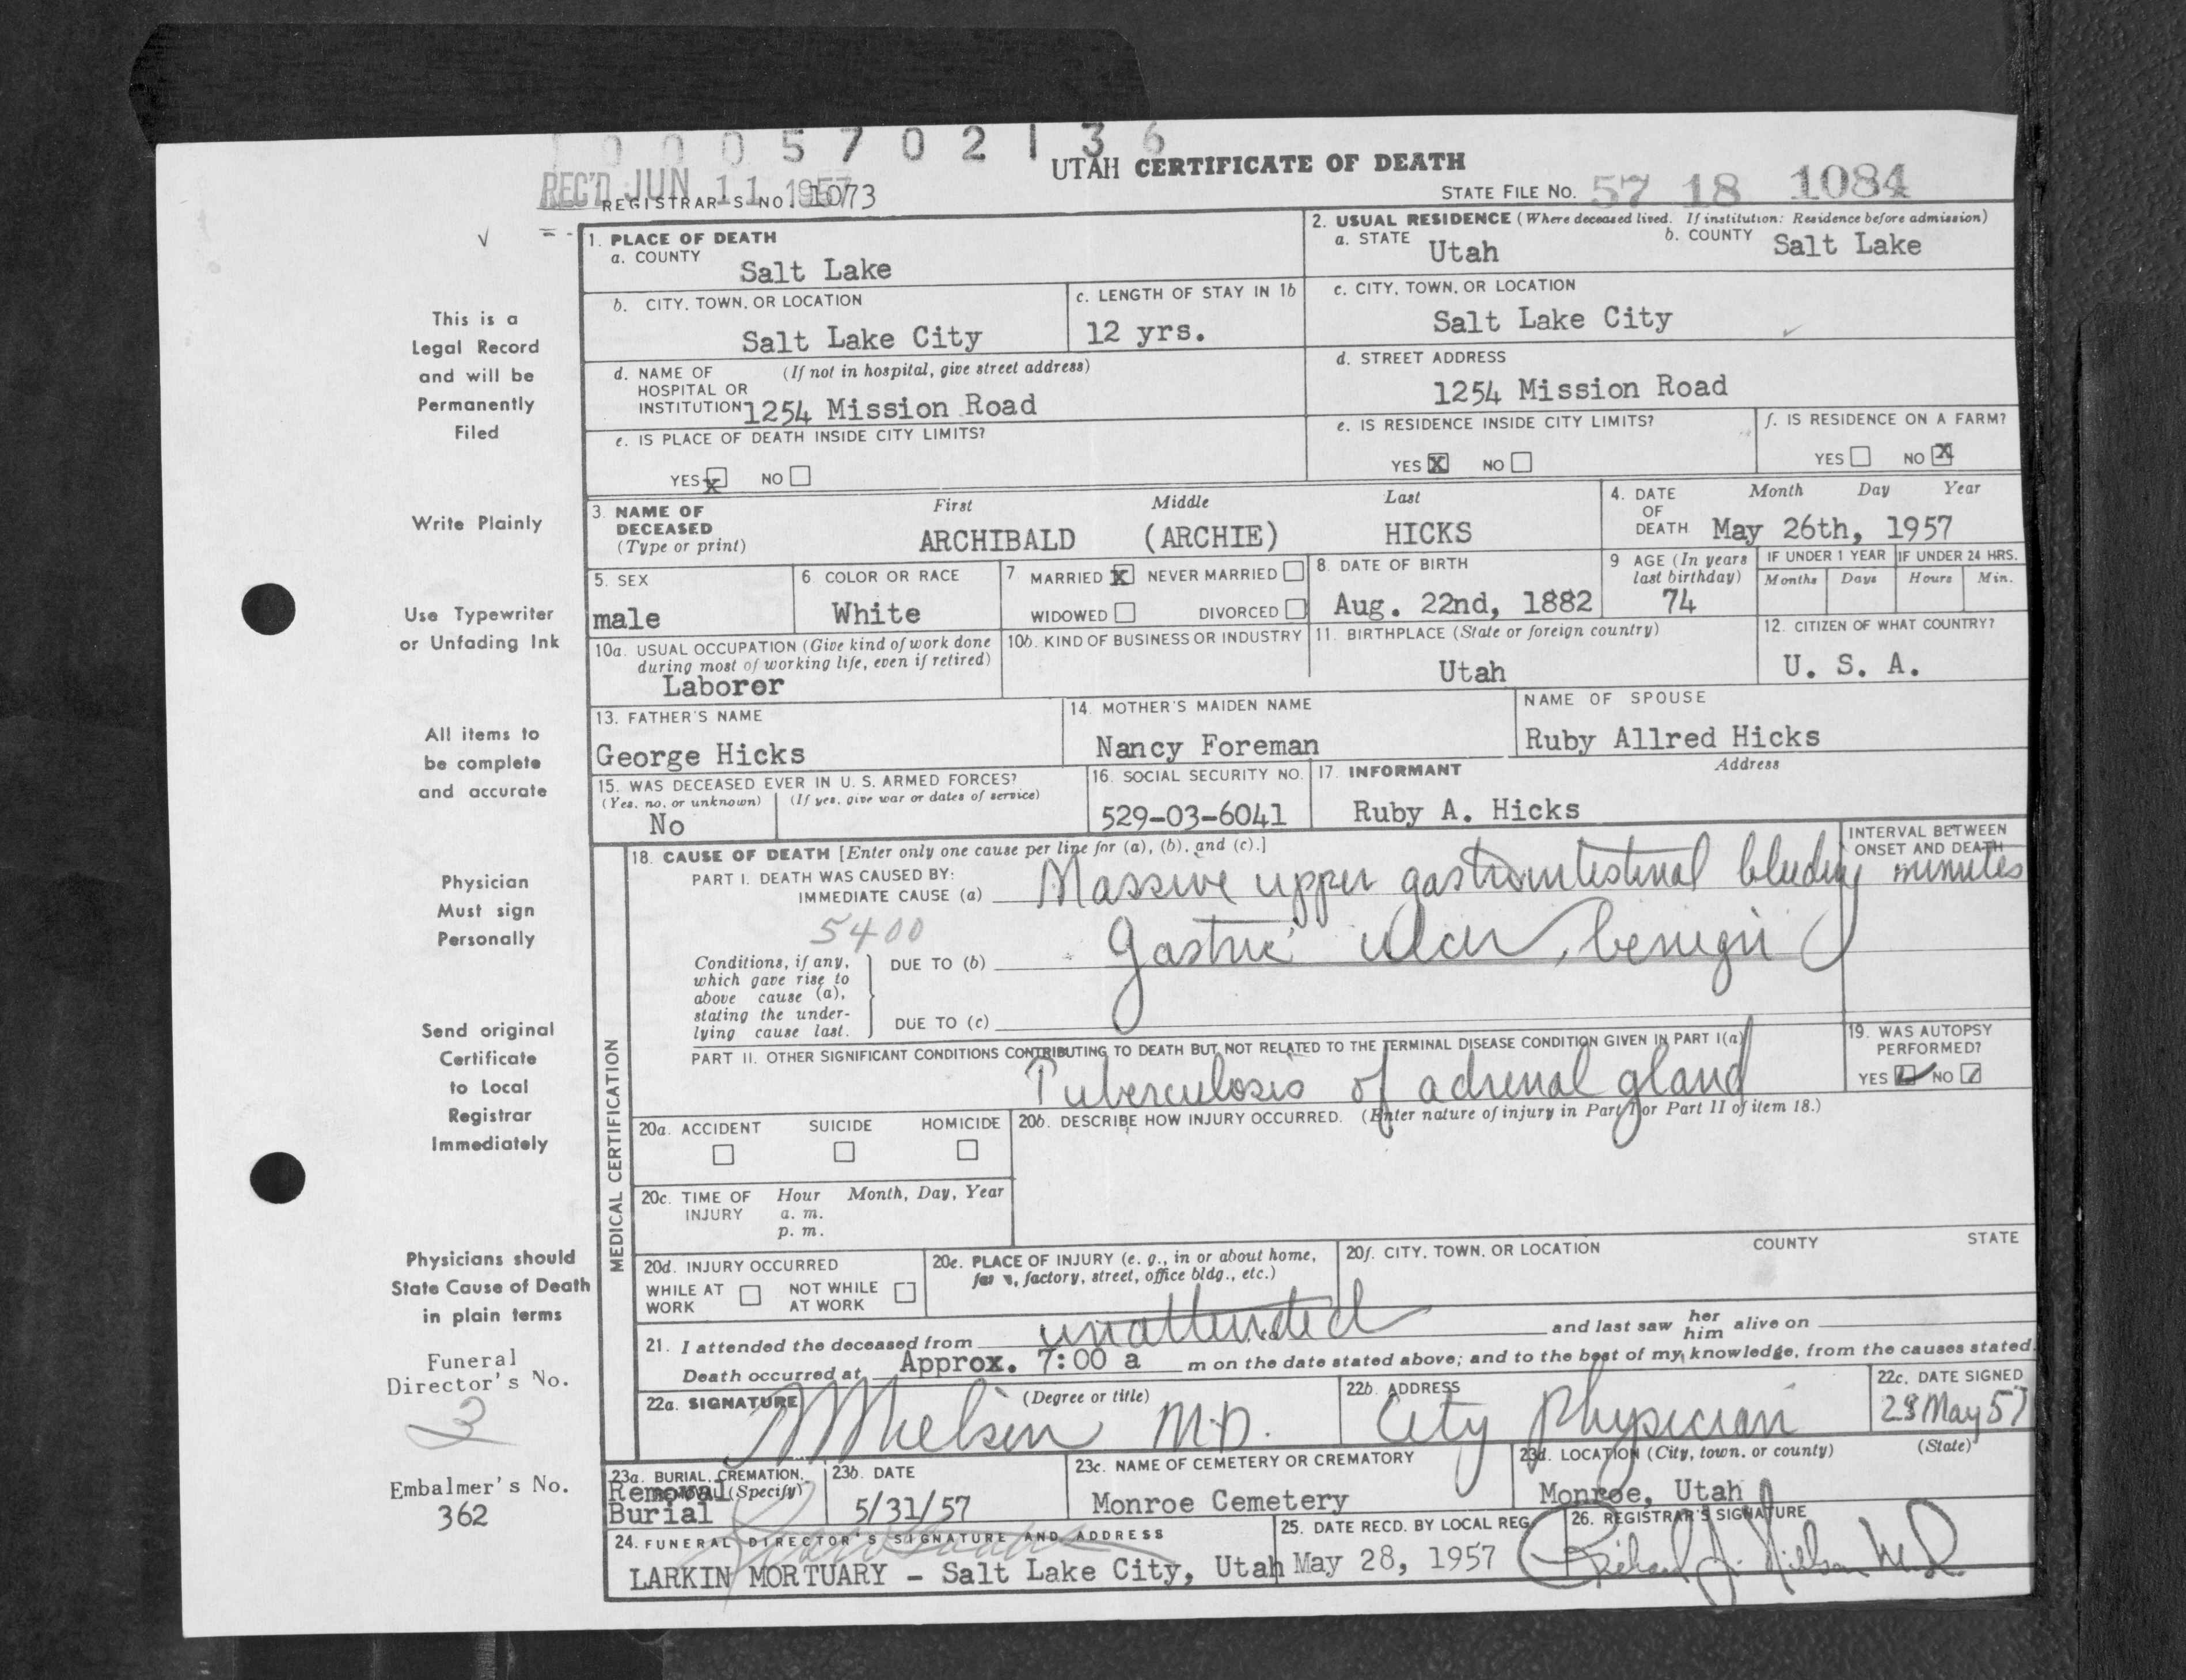 1 0 0 0 5 7 0 2 1 3 6
UTAH CERTIFICATE OF DEATH
REC'D JUN 11 1957
REGISTRAR'S NO. 1073
STATE FILE NO. 57 18 1084
1. PLACE OF DEATH
a. COUNTY
Salt Lake
2. USUAL RESIDENCE (Where deceased lived. If institution: Residence before admission)
a. STATE Utah b. COUNTY Salt Lake
b. CITY, TOWN, OR LOCATION
Salt Lake City
c. LENGTH OF STAY IN 1b
12 yrs.
c. CITY, TOWN, OR LOCATION
Salt Lake City
d. NAME OF (If not in hospital, give street address)
HOSPITAL OR
INSTITUTION 1254 Mission Road
d. STREET ADDRESS
1254 Mission Road
e. IS PLACE OF DEATH INSIDE CITY LIMITS?
YES X NO
e. IS RESIDENCE INSIDE CITY LIMITS?
YES X NO
f. IS RESIDENCE ON A FARM?
YES NO X
3. NAME OF DECEASED
(Type or print)
First Middle Last
ARCHIBALD (ARCHIE) HICKS
4. DATE OF DEATH
Month Day Year
May 26th, 1957
5. SEX
male
6. COLOR OR RACE
White
7. MARRIED X NEVER MARRIED
WIDOWED DIVORCED
8. DATE OF BIRTH
Aug. 22nd, 1882
9 AGE (In years
last birthday)
74
IF UNDER 1 YEAR
Months Days
IF UNDER 24 HRS.
Hours Min.
10a. USUAL OCCUPATION (Give kind of work done
during most of working life, even if retired)
Laborer
10b. KIND OF BUSINESS OR INDUSTRY
11. BIRTHPLACE (State or foreign country)
Utah
12. CITIZEN OF WHAT COUNTRY?
U. S. A.
13. FATHER'S NAME
George Hicks
14. MOTHER'S MAIDEN NAME
Nancy Foreman
NAME OF SPOUSE
Ruby Allred Hicks
15. WAS DECEASED EVER IN U. S. ARMED FORCES?
(Yes, no, or unknown) (If yes, give war or dates of service)
No
16. SOCIAL SECURITY NO.
529-03-6041
17. INFORMANT Address
Ruby A. Hicks
MEDICAL CERTIFICATION
18. CAUSE OF DEATH [Enter only one cause per line for (a), (b), and (c).]
PART I. DEATH WAS CAUSED BY:
IMMEDIATE CAUSE (a) Massive upper gastrointestinal bleeding
INTERVAL BETWEEN
ONSET AND DEATH
minutes
5400
Conditions, if any,
which gave rise to
above cause (a),
stating the under-
lying cause last.
DUE TO (b) Gastric ulcer, benign
DUE TO (c)
PART II. OTHER SIGNIFICANT CONDITIONS CONTRIBUTING TO DEATH BUT NOT RELATED TO THE TERMINAL DISEASE CONDITION GIVEN IN PART I(a)
Tuberculosis of adrenal gland
19. WAS AUTOPSY
PERFORMED?
YES NO
20a. ACCIDENT SUICIDE HOMICIDE
20b. DESCRIBE HOW INJURY OCCURRED. (Enter nature of injury in Part I or Part II of item 18.)
20c. TIME OF INJURY
Hour Month, Day, Year
a. m.
p. m.
20d. INJURY OCCURRED
WHILE AT WORK NOT WHILE AT WORK
20e. PLACE OF INJURY (e. g., in or about home,
factory, street, office bldg., etc.)
20f. CITY, TOWN, OR LOCATION COUNTY STATE
21. I attended the deceased from unattended and last saw her him alive on
Death occurred at Approx. 7:00 a m on the date stated above; and to the best of my knowledge, from the causes stated.
22a. SIGNATURE (Degree or title)
Nielsen M.D.
22b. ADDRESS
City Physician
22c. DATE SIGNED
28 May 57
23a. BURIAL, CREMATION,
(Specify)
Removal
Burial
23b. DATE
5/31/57
23c. NAME OF CEMETERY OR CREMATORY
Monroe Cemetery
23d. LOCATION (City, town, or county) (State)
Monroe, Utah
24. FUNERAL DIRECTOR'S SIGNATURE AND ADDRESS
LARKIN MORTUARY - Salt Lake City, Utah
25. DATE RECD. BY LOCAL REG.
May 28, 1957
26. REGISTRAR'S SIGNATURE
Richard J. Nielsen M.D.
This is a
Legal Record
and will be
Permanently
Filed
Write Plainly
Use Typewriter
or Unfading Ink
All items to
be complete
and accurate
Physician
Must sign
Personally
Send original
Certificate
to Local
Registrar
Immediately
Physicians should
State Cause of Death
in plain terms
Funeral
Director's No.
3
Embalmer's No.
362